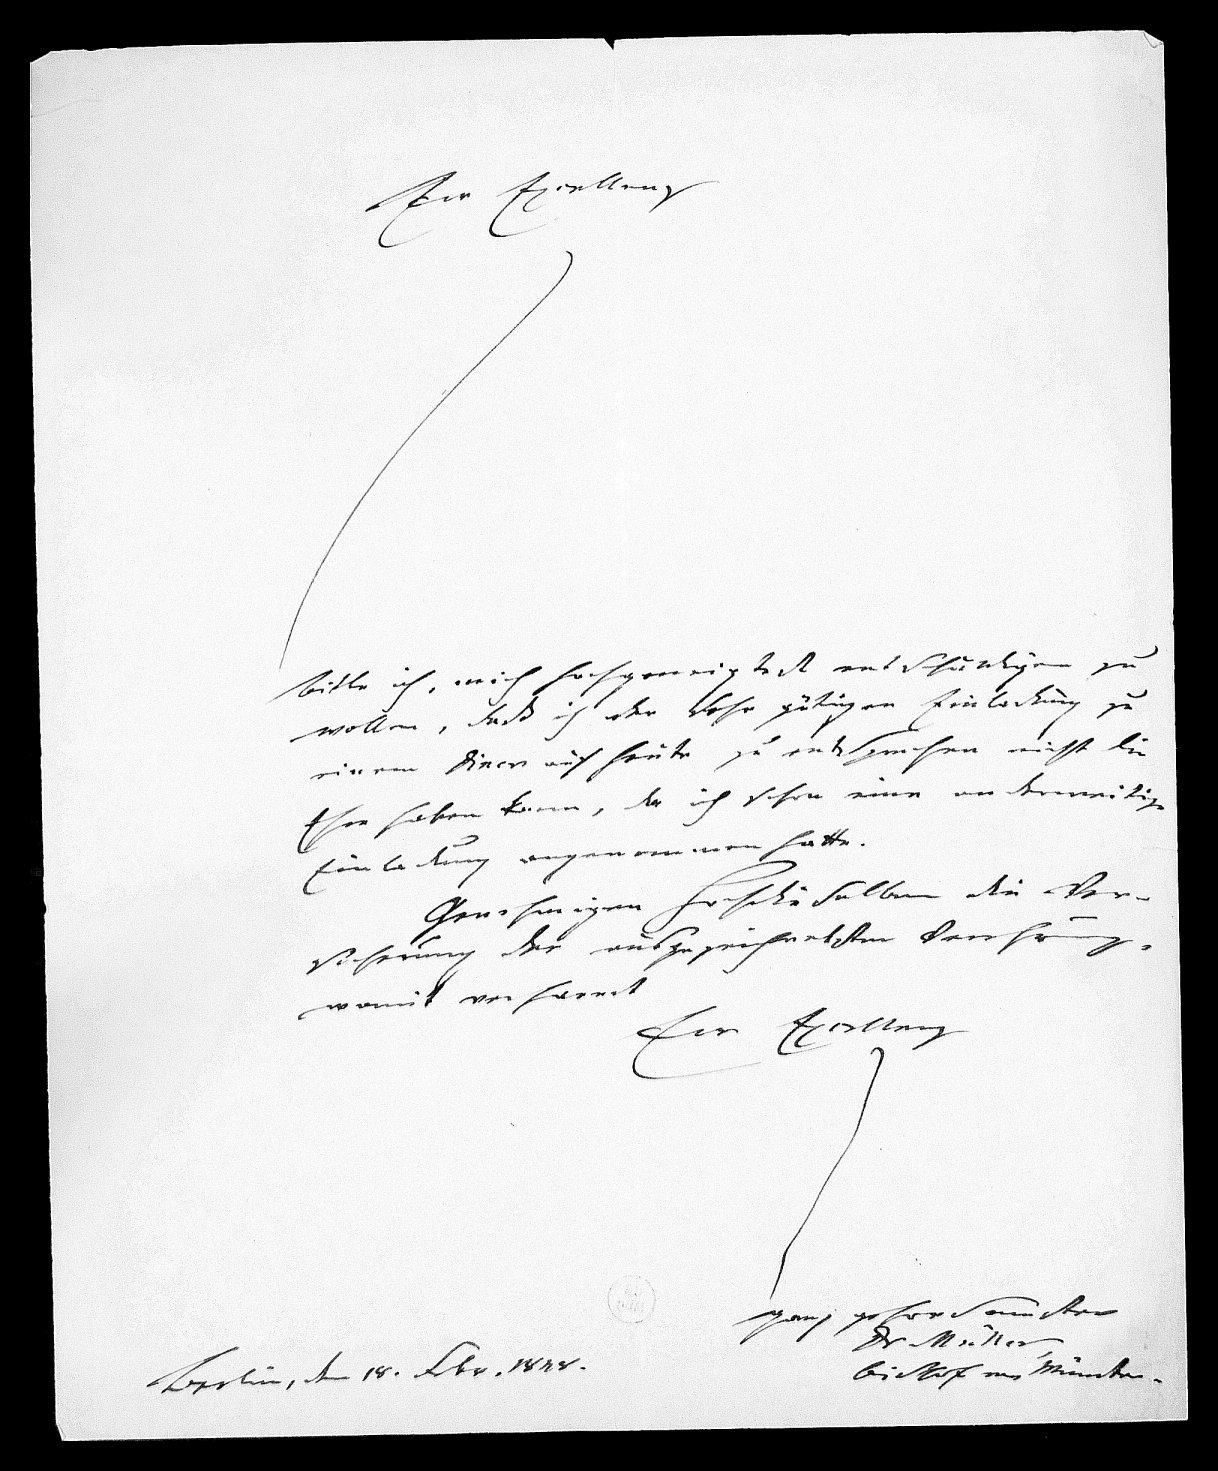 Ew Excellenz
bitte ich, mich hochgeneigtest entschuldigen zu
wollen, daß ich der sehr gütigen Einladung zu
einem Diner auf heute zu entsprechen nicht die
Ehre haben kann, da ich schon eine anderweitige
Einladung angenommen hatte.
Genehmigen Hochdieselben die Ver-
sicherung der ausgezeichnetsten Verehrung,
womit verharret
Ew Excellenz
ganz gehorsamster
Dr Müller,
Bischof von Münster.
Berlin, den 18. Febr. 18